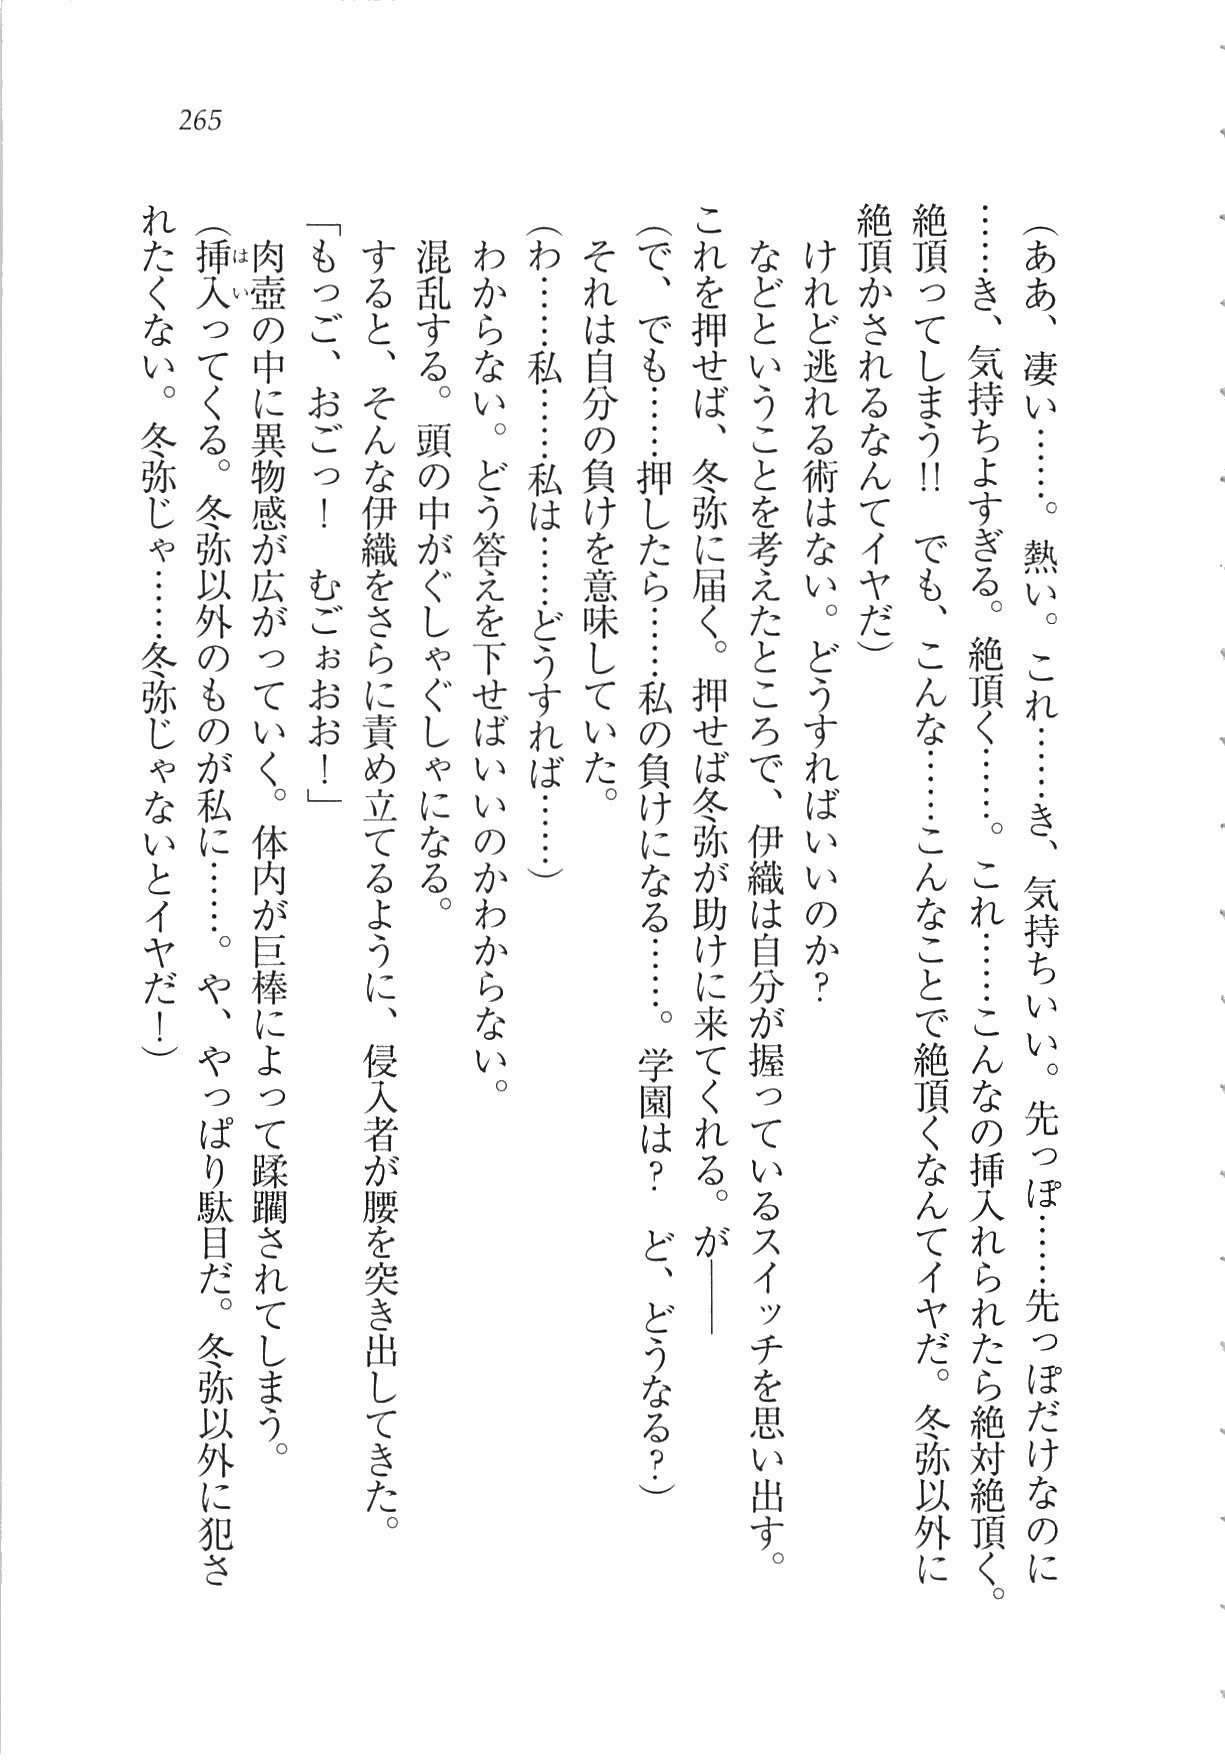 265
(ああ、凄い……。熱い。これ……き、気持ちいい。先っぽ……先っぽだけなのに
……き、気持ちよすぎる。絶頂く……。これ……こんなの挿入れられたら絶対絶頂く。
絶頂ってしまう!!　でも、こんな……こんなことで絶頂くなんてイヤだ。冬弥以外に
絶頂かされるなんてイヤだ)
けれど逃れる術はない。どうすればいいのか?
などということを考えたところで、伊織は自分が握っているスイッチを思い出す。
これを押せば、冬弥に届く。押せば冬弥が助けに来てくれる。が――
(で、でも……押したら……私の負けになる……。学園は?　ど、どうなる?)
それは自分の負けを意味していた。
(わ……私……私は……どうすれば……)
わからない。どう答えを下せばいいのかわからない。
混乱する。頭の中がぐしゃぐしゃになる。
すると、そんな伊織をさらに責め立てるように、侵入者が腰を突き出してきた。
「もっご、おごっ!　むごぉおお!」
肉壺の中に異物感が広がっていく。体内が巨棒によって蹂躙されてしまう。
(挿入ってくる。冬弥以外のものが私に……。や、やっぱり駄目だ。冬弥以外に犯さ
れたくない。冬弥じゃ……冬弥じゃないとイヤだ!)